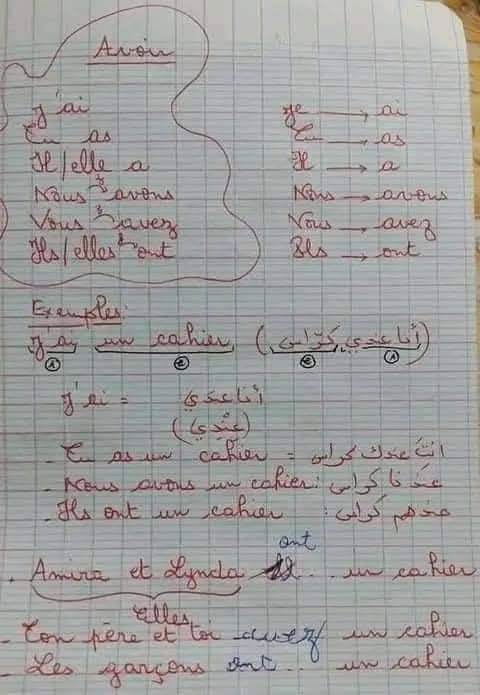 Avoir
J'ai
Tu as
Il/elle a
Nous avons
Vous avez
Ils/elles ont
Je → ai
Tu → as
Il → a
Nous → avons
Vous → avez
Ils → ont
Exemples:
J'ai un cahier (أنا عندي كرّاس)
① ② ② ①
J'ai = أنا عندي
(عنْدِي)
- Tu as un cahier = انتَ عندك كراس
- Nous avons un cahier : عندنا كراس
- Ils ont un cahier : عندهم كراس
ont
. Amira et Lynda .. un cahier
Elles
- Ton père et toi avez un cahier
- Les garçons ont .. un cahier